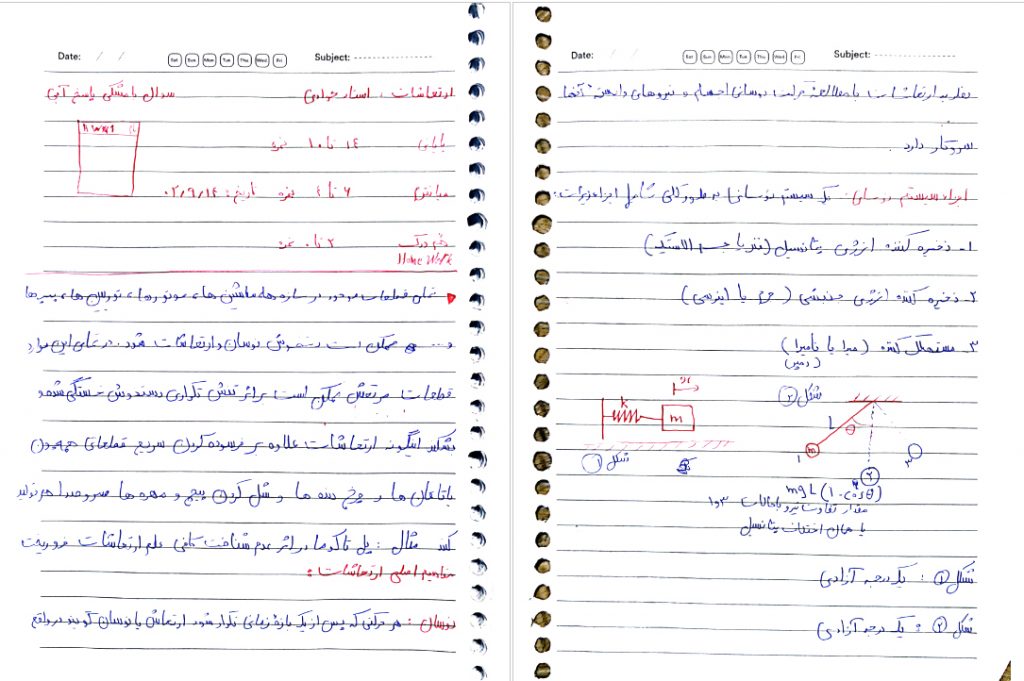 Date: / /
Sat Sun Mon Tue Thu Wed Fri
Subject:
ارتعاشات، استاد جوادی
سوال با مشکی پاسخ آبی
H.W#1
پایانی ۱۴ تا ۱۰ نمره
میانترم ۶ تا ۴ نمره تاریخ: ۰۲/۹/۱۴
۲ تا ۰ نمره
Home Work
تمامی قطعات موجود در سازه ها، ماشین ها، موتورها، توربین ها، پمپ ها
و... ممکن است دستخوش نوسان و ارتعاشات شود. در تمامی این موارد
قطعات مرتعش ممکن است بر اثر تنش تکراری دستخوش خستگی شده و
بشکند اینگونه ارتعاشات علاوه بر فرسوده کردن سریع قطعاتی همچون
یاتاقان ها و چرخ دنده ها و شل کردن پیچ و مهره ها سر و صدا هم تولید
کند مثال: پل تاکوما در اثر عدم شناخت کافی علم ارتعاشات فرو ریخت
مفاهیم اصلی ارتعاشات:
نوسان: هر حرکتی که پس از یک بازه زمانی تکرار شود ارتعاش یا نوسان گویند در واقع
Date: / /
Sat Sun Mon Tue Thu Wed Fri
Subject:
نظریه ارتعاشات، با مطالعه حرکت نوسانی اجسام و نیروهای وابسته آنها
سر و کار دارد.
اجزاء سیستم نوسانی: یک سیستم نوسانی به طور کلی شامل اجزاء زیر است:
۱- ذخیره کننده انرژی پتانسیل (فنر یا جسم الاستیک)
۲- ذخیره کننده انرژی جنبشی (جرم یا اینرسی)
۳- مستهلک کننده (میرا یا نامیرا)
(دمپر)
x
k
m
شکل ۱
شکل ۲
L
θ
m
۱
۲
۳
mgL(1-cosθ)
مقدار تفاوت نیرو با حالات ۳و۱
یا همان اختلاف پتانسیل
شکل ۱: یک درجه آزادی
شکل ۲: یک درجه آزادی